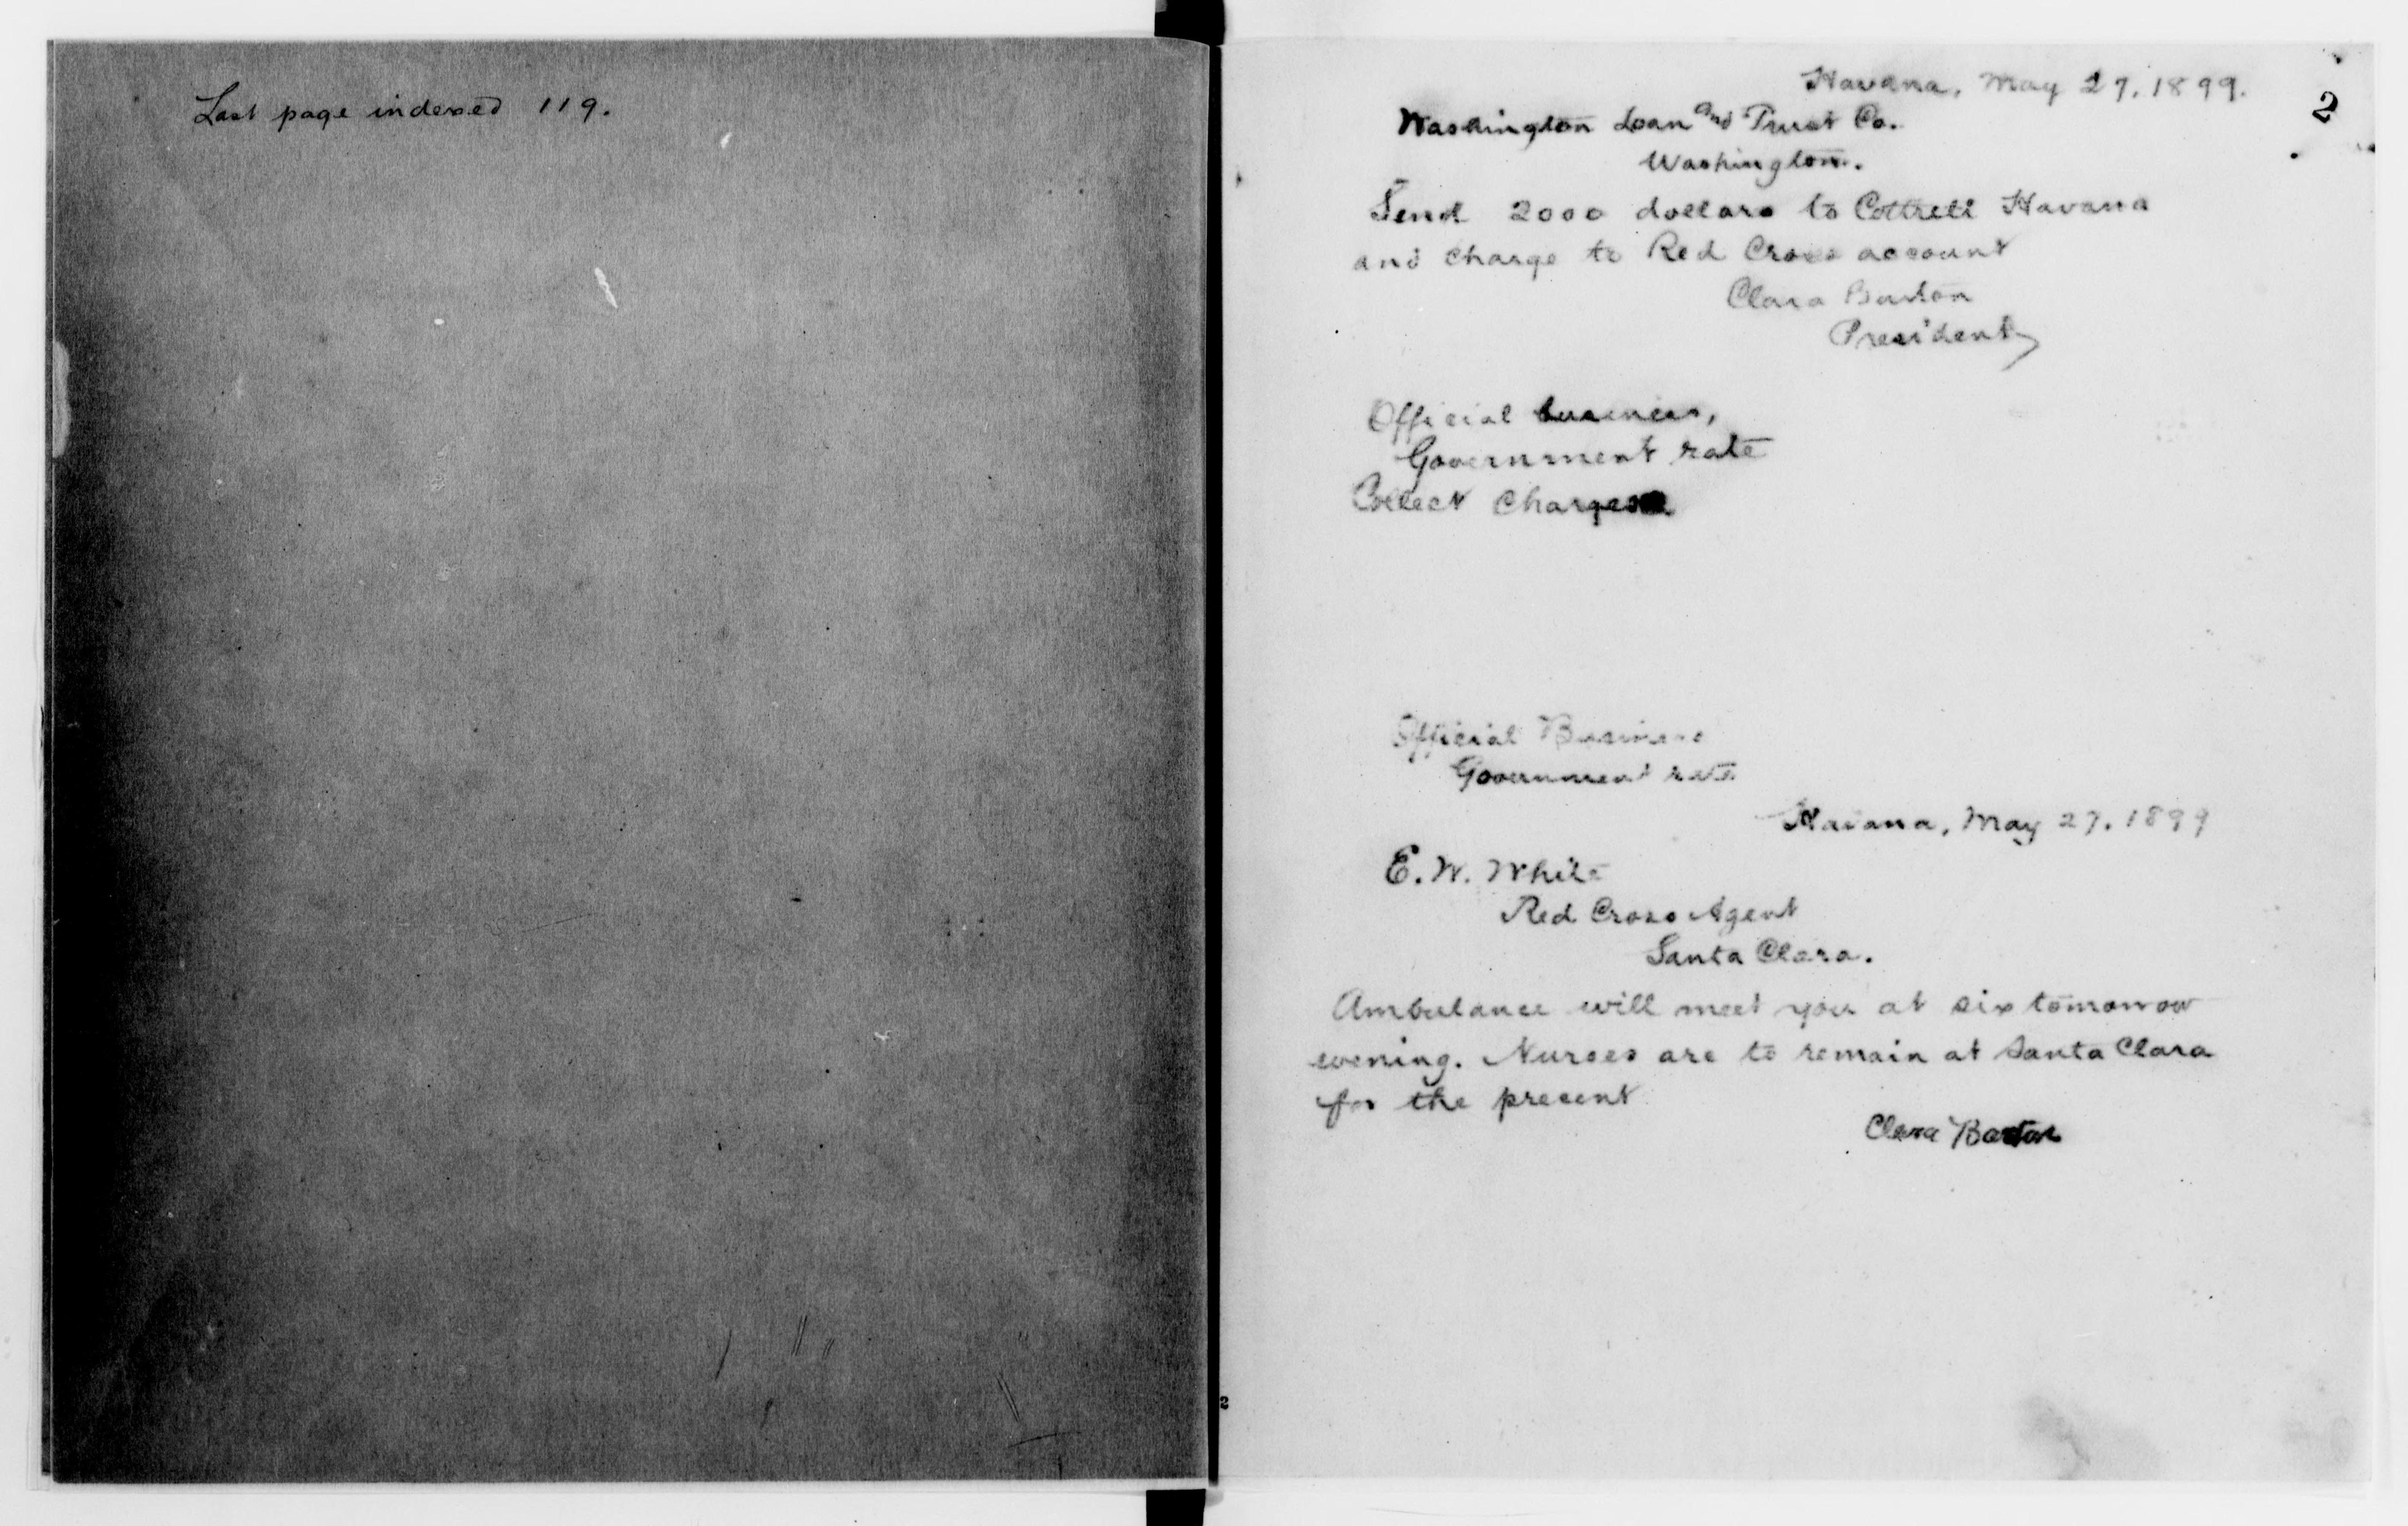 Last page indexed 119.
2
Havana, May 27. 1899.
Washington Loan and Trust Co.
Washington.
Send 2000 dollars to Cottrell Havana
and charge to Red Cross account
Clara Barton
President
Official business,
Government rate
Collect Charges
Official Business
Government rate
Havana, May 27. 1899
E. W. White
Red Cross Agent
Santa Clara.
Ambulance will meet you at six tomorrow
evening. Nurses are to remain at Santa Clara
for the present
Clara Barton
2